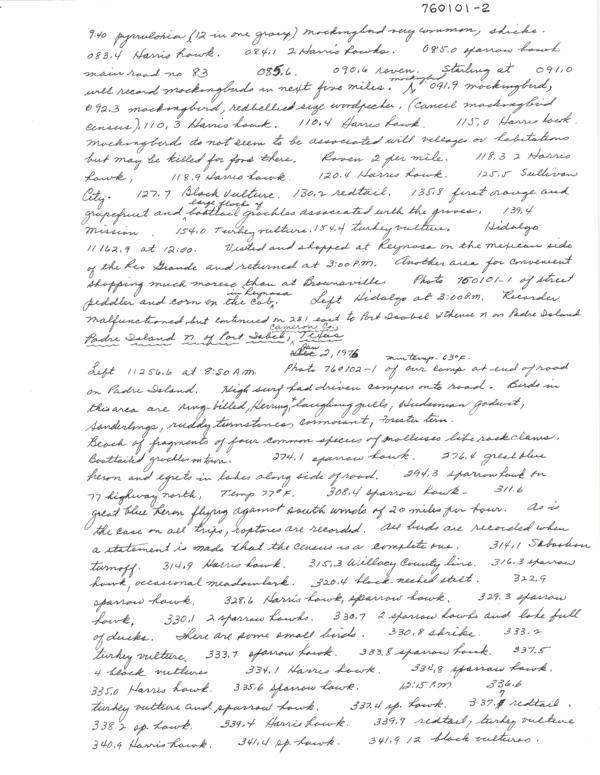 760101-2
9:40 pyrruloxia (12 in one group) mockingbird very common, shrike.
083.4 Harris hawk. 084.1 2 Harris hawks. 085.0 sparrow hawk
main road no 83 085.6. 090.6 raven. Starling at 091.0
will record mockingbirds in next five miles. mockingbird 091.9 mockingbird,
092.3 mockingbird, redbellied size woodpecker. (Cancel mockingbird
census). 110.3 Harris hawk. 110.4 Harris hawk 115.0 Harris hawk
mockingbirds do not seem to be associated with villages or habitations
but may be killed for food there. Raven 2 per mile. 118.3 2 Harris
hawk, 118.9 Harris hawk. 120.4 Harris hawk. 125.5 Sullivan
City. 127.7 Black Vulture. 130.2 redtail. 135.8 first orange and
grapefruit and large flocks of boattail grackles associated with the groves. 139.4
Mission. 154.0 Turkey vulture. 154.4 turkey vulture. Hidalgo
11162.9 at 12:00. Visited and shopped at Reynosa on the Mexican side
of the Rio Grande and returned at 3:00 P.M. Another area for convenient
shopping much more so than at Brownsville. Photo 760101-1 of street
peddler and corn on the cob in Reynosa. Left Hidalgo at 3:00 P.M. Recorder
malfunctioned, but continued on 281 east to Port Isabel & thence N on Padre Island
Padre Island N. of Port Isabel, Cameron Co., Texas
Jan 2, 1976 min temp. 63°F.
Left 11256.6 at 8:50 A.M. Photo 760102-1 of our camp at end of road
on Padre Island. High surf had driven campers onto road. Birds in
this area are ring-billed, Herring & laughing gulls, Hudsonian godwit,
Sanderlings, ruddy turnstones, cormorant, Forester tern.
Beach of fragments of four common species of molluscs like rock clams.
Boattailed grackles on town. 274.1 sparrow hawk. 276.4 great blue
heron and egrets in lakes along side of road. 294.3 sparrow hawk on
77 highway north, Temp 77°F. 308.4 sparrow hawk- 311.6
great blue heron flying against south winds of 20 miles per hour. As is
the case on all trips, raptores are recorded. All birds are recorded when
a statement is made that the census is a complete one. 314.1 Sebastian
turnoff. 314.9 Harris hawk. 315.3 Willacy County line. 316.3 sparrow
hawk, occasional meadowlark. 320.4 black necked stilt. 322.9
sparrow hawk. 328.6 Harris hawk, sparrow hawk. 329.3 sparrow
hawk, 330.1 2 sparrow hawks. 330.7 2 sparrow hawks and lake full
of ducks. There are some small birds. 330.8 shrike. 333.2
turkey vulture. 333.7 sparrow hawk. 333.8 sparrow hawk. 337.5
4 black vultures 334.1 Harris hawk. 334.8 sparrow hawk.
335.0 Harris hawk. 335.6 sparrow hawk. 12:15 PM 336.6
turkey vulture and sparrow hawk. 337.4 sp. hawk. 337.7 redtail.
338.2 sp. hawk. 339.4 Harris hawk. 339.9 redtail, turkey vulture
340.9 Harris hawk. 341.4 sp hawk. 341.9 12 black vultures.